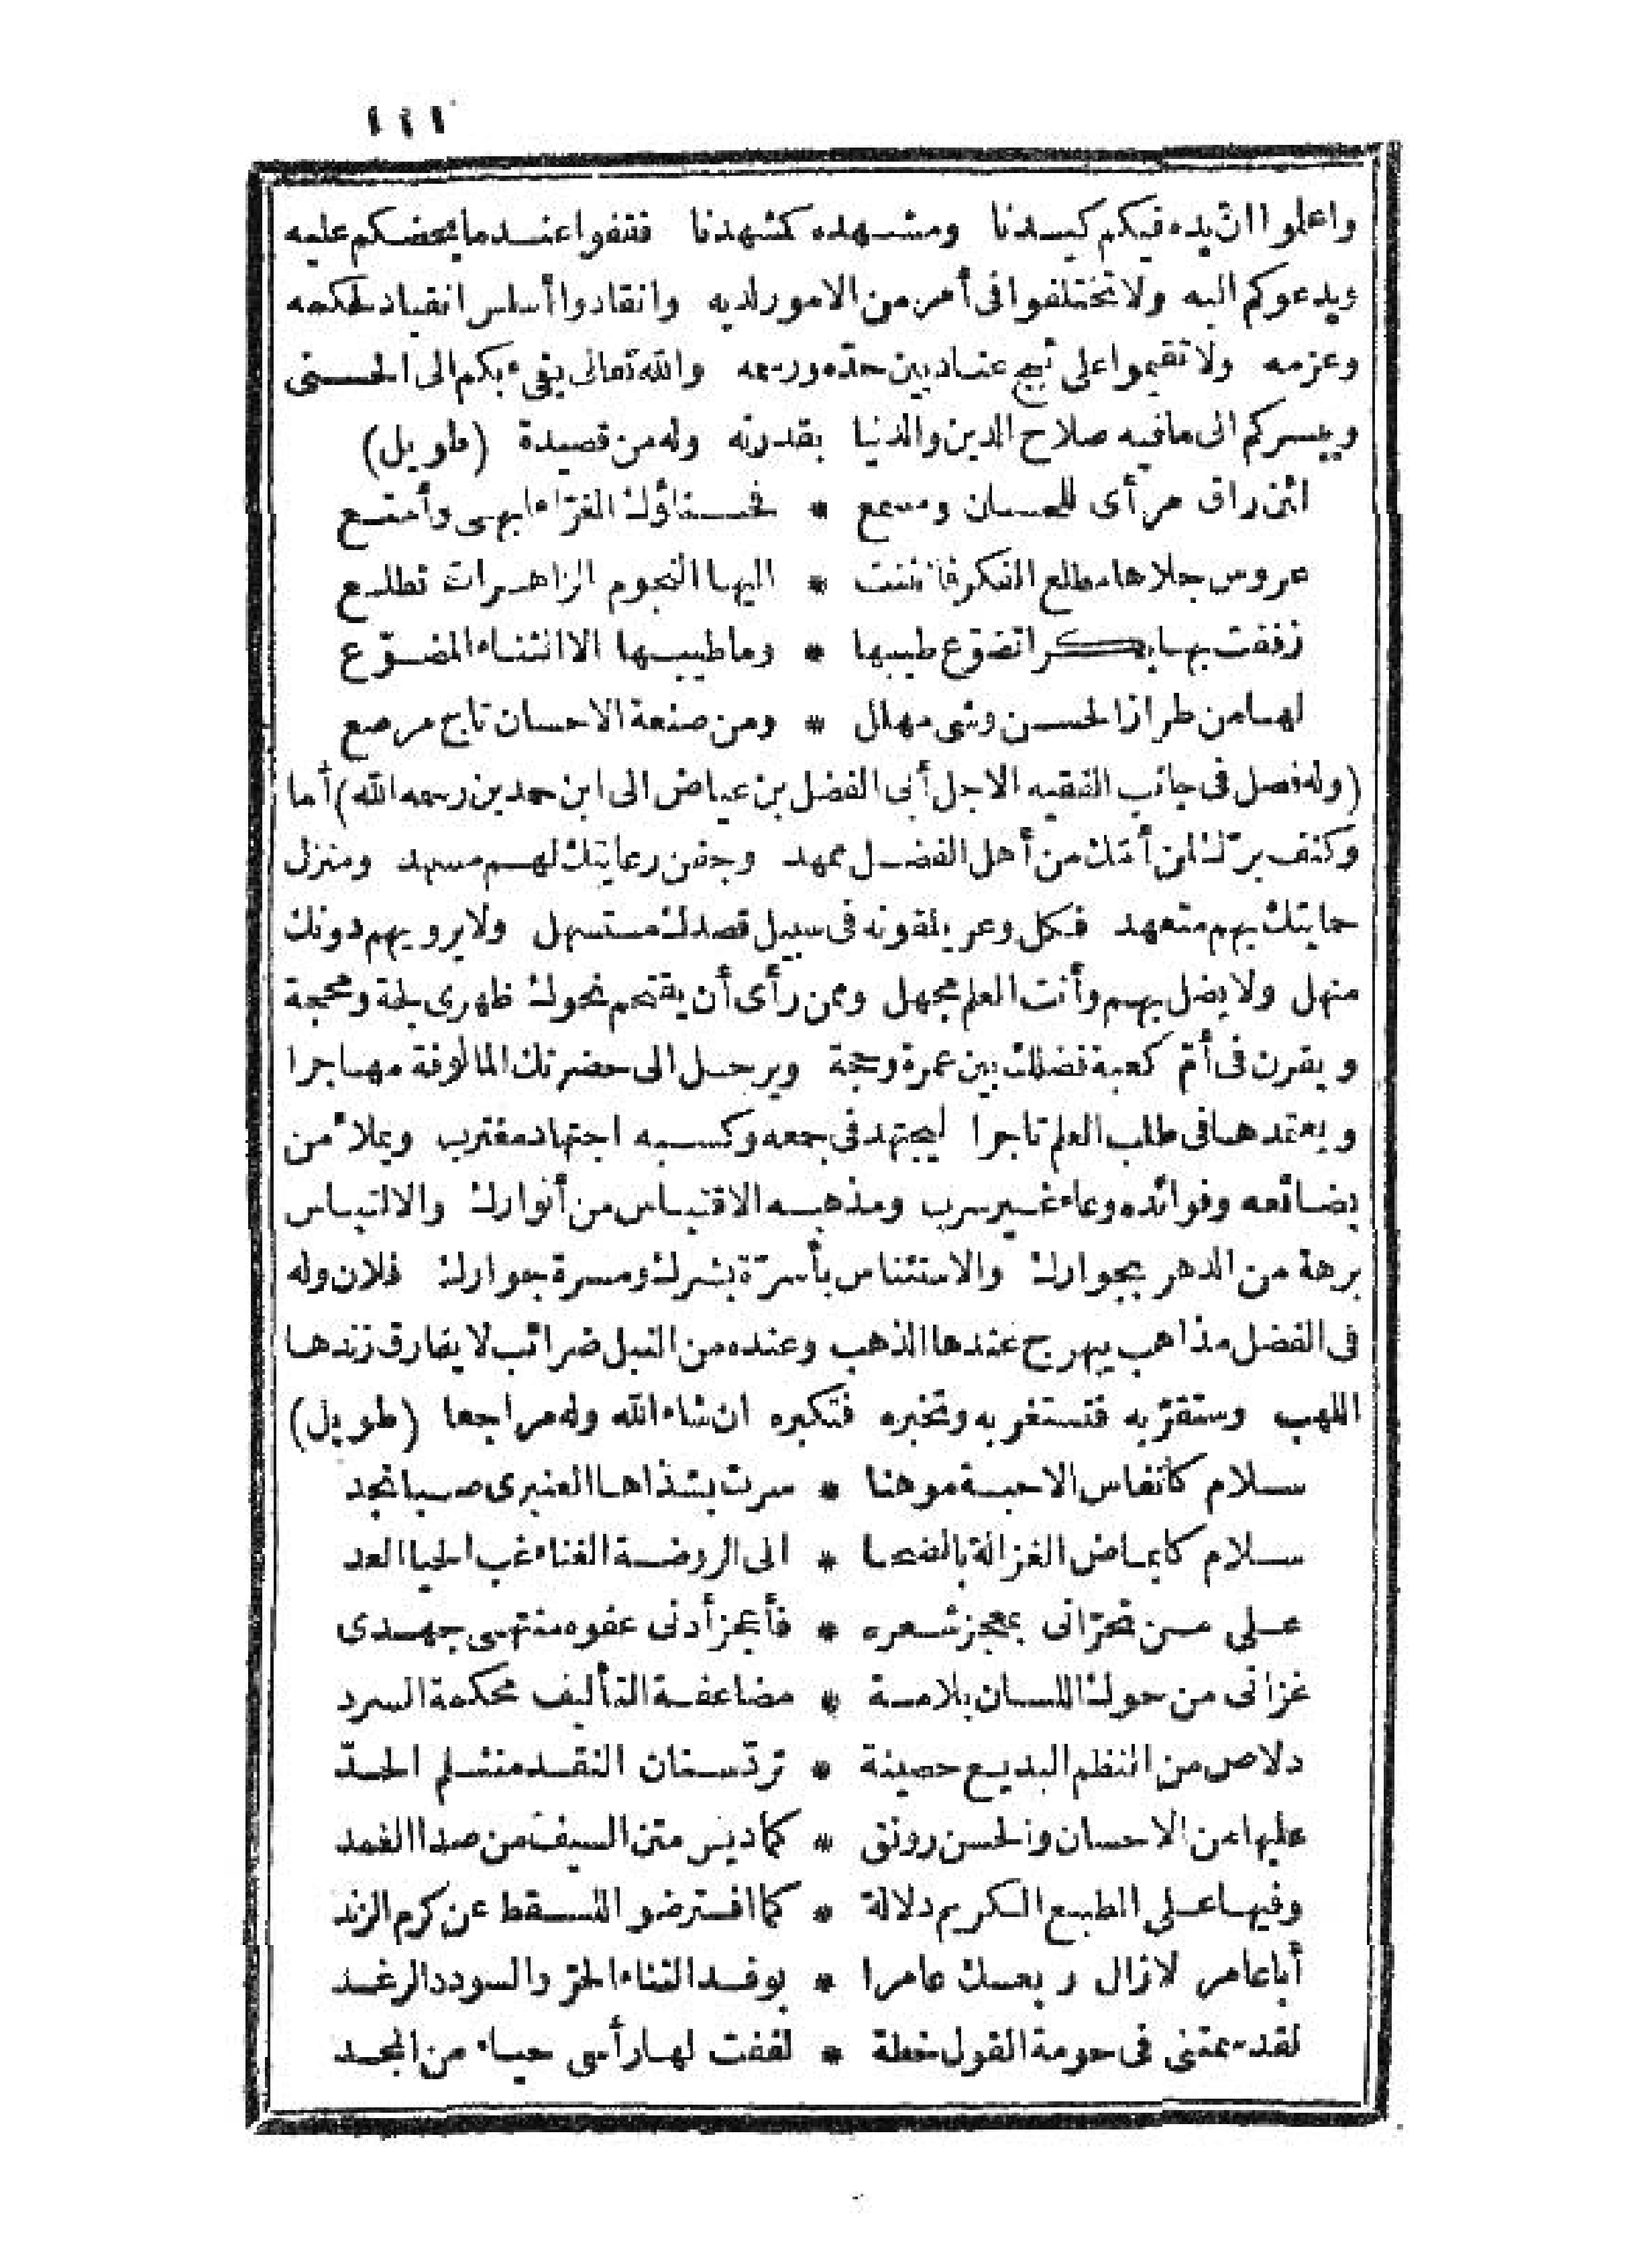 ١١١
واعلموا ان يده فيكم كيدنا ومشهده كمشهدنا فقفوا عند ما يحضكم عليه
ويدعوكم اليه ولا تختلفوا فى أمر من الامور لديه وانقادوا أسلس انقياد لحكمه
وعزمه ولا تقيموا على ثبج عناد بين حدّه ورسمه والله تعالى يفىء بكم الى الحسنى
وييسركم الى ما فيه صلاح الدين والدنيا بقدرته وله من قصيدة (طويل)
لئن راق مرأى للحسان ومسمع * فحسناؤك الغرّاء ابهى وأمتع
عروس جلاها مطلع الفكر فانثنت * اليها النجوم الزاهرات تطلع
زففت بها بكرا تضوّع طيبها * وما طيبها الا الثناء المضوّع
لها من طراز الحسن وشى مهلل * ومن صنعة الاحسان تاج مرصع
(وله فصل فى جانب الفقيه الاجل أبى الفضل بن عياض الى ابن حمدين رحمه الله) أما
وكنف برّك لمن أمّك من أهل الفضل ممهد وجفن رعايتك لهم مسهد ومنزل
حمايتك بهم متعهد فكل وعر يلقونه فى سبيل قصدك مستسهل ولا يرويهم دونك
منهل ولا يضل بهم وأنت العلم مجهل وممن رأى أن يقتحم نحوك ظهرى لجة ومحجة
ويقرن فى أمّ كعبة فضلك بين عمرة وحجة ويرحل الى حضرتك المالوفة مهاجرا
ويعتمدها فى طلب العلم تاجرا ليجتهد فى جمعه وكسبه اجتهاد مغترب ويملأ من
بضائعه وفوائده وعاء غير سرب ومذهبه الاقتباس من أنوارك والالتباس
برهة من الدهر بجوارك والاستئناس بأسرّة بشرك ومسرة جوارك فلان وله
فى الفضل مذاهب يبهرج عندها الذهب وعنده من النبل ضرائب لا يفارق زندها
اللهب وستقرّ به فتستغربه وتخبره فتكبره ان شاء الله وله مراجعا (طويل)
سلام كأنفاس الاحبة موهنا * سرت بشذاها العنبرى صبا نجد
سلام كايماض الغزالة بالضحا * الى الروضة الغناء غب الحيا العد
على من تحرّانى بمعجز شعره * فأعجز أدنى عفوه منتهى جهدى
غزانى من حوك اللسان بلامة * مضاعفة التأليف محكمة السرد
دلاص من النظم البديع حصينة * تردّ سنان النقد منثلم الحدّ
عليها من الاحسان والحسن رونق * كما ديس متن السيف من صدا الغمد
وفيها على الطبع الكريم دلالة * كما افترّ ضو السقط عن كرم الزند
أبا عامر لا زال ربعك عامرا * بوفد الثناء الحرّ والسودد الرغد
لقد سمتنى فى حومة القول خطة * لففت لها رأسى حياء من المجد